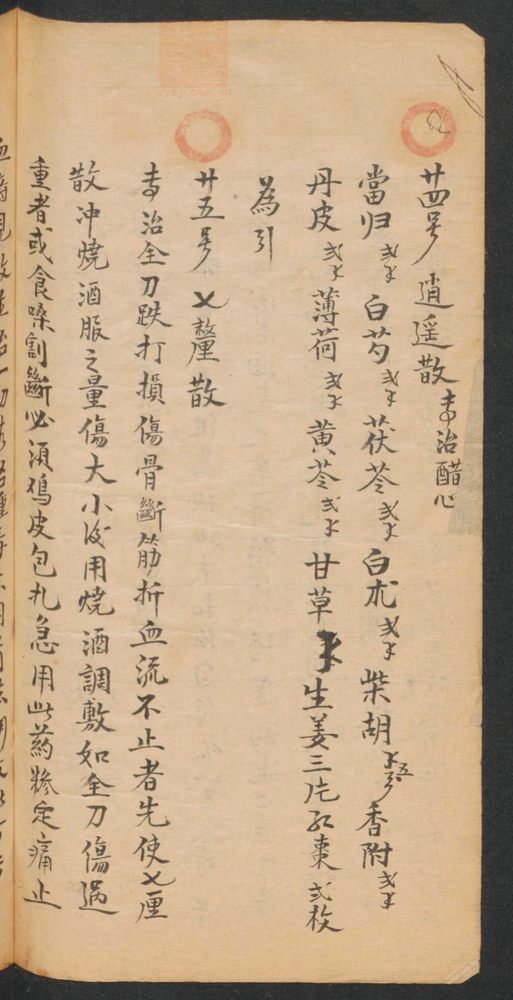 廿四号 逍遥散 专治醋心
當归弍千 白芍弍千 茯苓弍千 白朮弍千 柴胡千五分 香附弍千
丹皮弍千 薄荷弍千 黄芩弍千 甘草千 生姜三片 红棗弍枚
為引
廿五号 乂釐散
专治金刀跌打損傷骨斷筋折血流不止者先使乂厘
散冲燒酒服之量傷大小後用燒酒調敷如金刀傷過
重者或食嗓割斷必須鸡皮包扎急用此葯糁定痛止